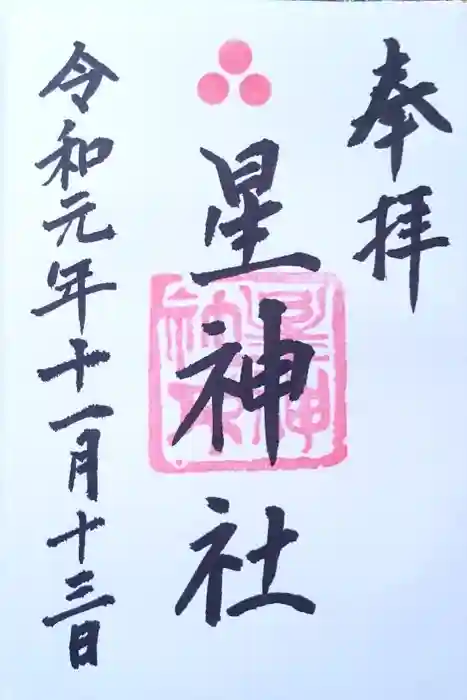 奉拝
星神社
令和元年十一月十三日